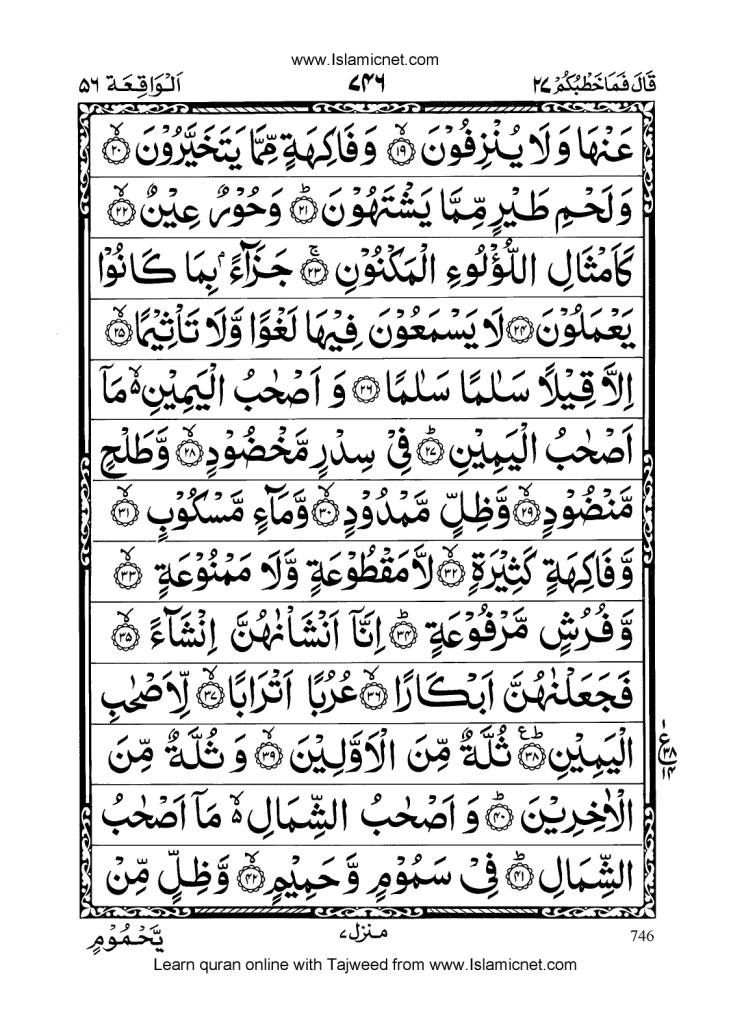 www.Islamicnet.com
قَالَ فَمَا خَطْبُكُمْ ۲۷
۷۴۶
اَلْوَاقِعَة ۵۶
عَنْهَا وَلَا يُنْزِفُوْنَ ۙ﴿۱۹﴾ وَفَاكِهَةٍ مِّمَّا يَتَخَيَّرُوْنَ ۙ﴿۲۰﴾
وَلَحْمِ طَيْرٍ مِّمَّا يَشْتَهُوْنَ ؕ﴿۲۱﴾ وَحُوْرٌ عِيْنٌ ۙ﴿۲۲﴾
كَاَمْثَالِ اللُّؤْلُوءِ الْمَكْنُوْنِ ۚ﴿۲۳﴾ جَزَآءًۢ بِمَا كَانُوْا
يَعْمَلُوْنَ ﴿۲۴﴾ لَا يَسْمَعُوْنَ فِيْهَا لَغْوًا وَّلَا تَاْثِيْمًا ۙ﴿۲۵﴾
اِلَّا قِيْلًا سَلٰمًا سَلٰمًا ﴿۲۶﴾ وَ اَصْحٰبُ الْيَمِيْنِ ۙ۬ مَآ
اَصْحٰبُ الْيَمِيْنِ ؕ﴿۲۷﴾ فِيْ سِدْرٍ مَّخْضُوْدٍ ۙ﴿۲۸﴾ وَّطَلْحٍ
مَّنْضُوْدٍ ۙ﴿۲۹﴾ وَّظِلٍّ مَّمْدُوْدٍ ۙ﴿۳۰﴾ وَّمَآءٍ مَّسْكُوْبٍ ۙ﴿۳۱﴾
وَّفَاكِهَةٍ كَثِيْرَةٍ ۙ﴿۳۲﴾ لَّا مَقْطُوْعَةٍ وَّلَا مَمْنُوْعَةٍ ۙ﴿۳۳﴾
وَّفُرُشٍ مَّرْفُوْعَةٍ ؕ﴿۳۴﴾ اِنَّآ اَنْشَاْنٰهُنَّ اِنْشَآءً ۙ﴿۳۵﴾
فَجَعَلْنٰهُنَّ اَبْكَارًا ۙ﴿۳۶﴾ عُرُبًا اَتْرَابًا ۙ﴿۳۷﴾ لِّاَصْحٰبِ
الْيَمِيْنِ ؕ﴿۳۸﴾ ثُلَّةٌ مِّنَ الْاَوَّلِيْنَ ۙ﴿۳۹﴾ وَ ثُلَّةٌ مِّنَ
ع ۱ ۳۸ ۱۴
الْاٰخِرِيْنَ ؕ﴿۴۰﴾ وَ اَصْحٰبُ الشِّمَالِ ۙ۬ مَآ اَصْحٰبُ
الشِّمَالِ ؕ﴿۴۱﴾ فِيْ سَمُوْمٍ وَّحَمِيْمٍ ۙ﴿۴۲﴾ وَّظِلٍّ مِّنْ
746
منزل ۷
يَّحْمُوْمٍ
Learn quran online with Tajweed from www.Islamicnet.com